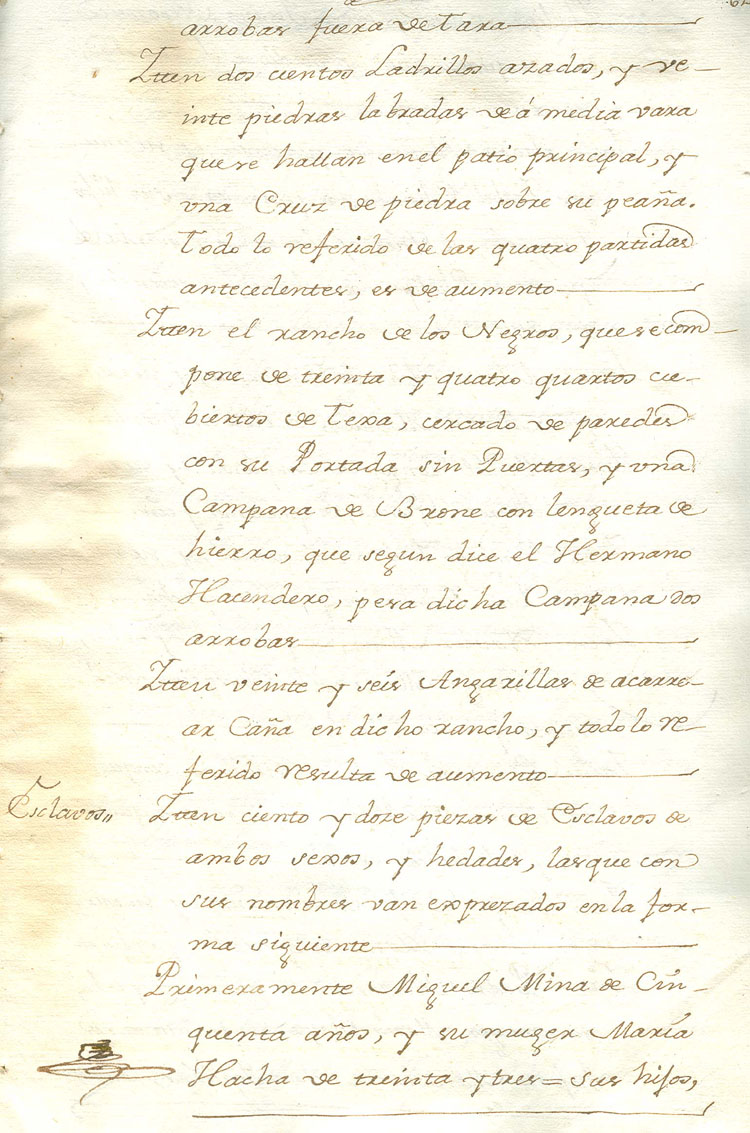 arrobas fuera de Tara
Ytten dos cientos Ladrillos azados, y ve-
inte piedras labradas de á media vara
que se hallan en el patio principal, y
vna Cruz de piedra sobre su peaña.
Todo lo referido de las quatro partidas
antecedentes, es de aumento
Ytten el rancho de los Negros, que se com-
pone de treinta y quatro quartos cu-
biertos de Texa, cercado de paredes
con su Portada sin Puertas, y vna
Campana de Brone con lengueta de
hierro, que segun dice el Hermano
Hacendero, pesa dicha Campana dos
arrobas
Ytten veinte y seis Angarillas de acarre-
ar Caña en dicho rancho, y todo lo re-
ferido resulta de aumento
Esclavos,, Ytten ciento y doze piezas de Esclavos de
ambos sexos, y hedades, las que con
sus nombres van exprezados en la for-
ma siguiente
Primeramente Miguel Mina de Cin-
quenta años, y su muger María
Hacha de treinta y tres = sus hijos,